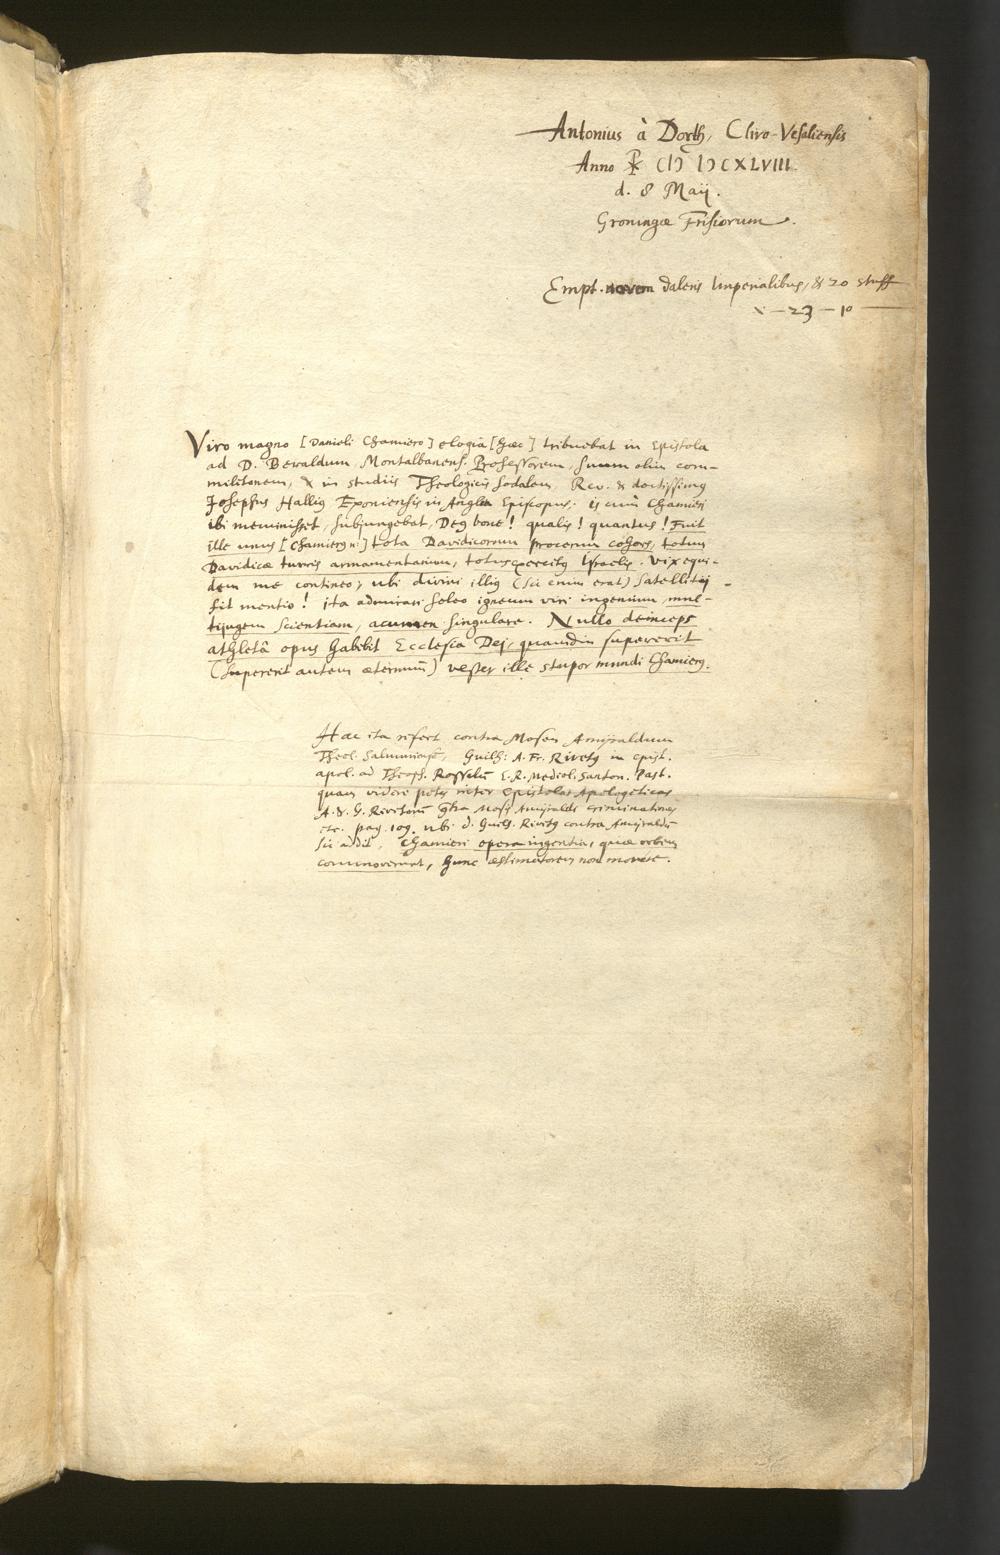 Antonius à Dorth, Clivo-Vesaliensis
Anno ☧ CIↃ IↃCXLVIII.
d. 8 Maij.
Groningæ Frisiorum.
Empt. novem daleris Imperialibus, & 20 stuff
23 — 10
Viro magno [Danieli Chamiero] elogia [hæc] tribuebat in Epistola
ad D. Beraldum, Montalbanens. Professorem, suum olim com-
militonem, & in studiis Theologicis sodalem, Rev. & doctissimus
Josephus Hallius Exoniensis in Anglia Episcopus. is cum Chamieri
ibi meminisset, subjungebat, Deus bone! qualis! quantus! Fuit
ille unus [Chamierus n.] tota Davidicorum procerum cohors, totum
Davidicæ turris armamentarium, totus exercitus Israelis. Vix equi-
dem me contineo, ubi divini illius (sic enim erat) satellitij
fit mentio! ita admirari soleo igneum viri ingenium, mul-
tijugem scientiam, acumen singulare. Nullo deinceps
athletâ opus habebit Ecclesia Dei, quamdiu supererit
(supererit autem æternum) vester ille stupor mundi Chamierus.
Hæc ita refert contra Mosen Amyraldum
Theol. Salmuriensē, Guilh: A. Fr. Rivetus in epist.
apol. ad Theoph. Rosselū E.R. Mediol. Santon. Past.
quam videre potes inter Epistolas Apologeticas
A. & G. Rivetorū contra Mosis Amyraldi criminationes
etc. pag. 109. ubi d. Guilh. Rivetus contra Amyraldū
sic addit, Chamieri opera ingentia, quæ orbem
commoverunt, hunc æstimatorem non movere.